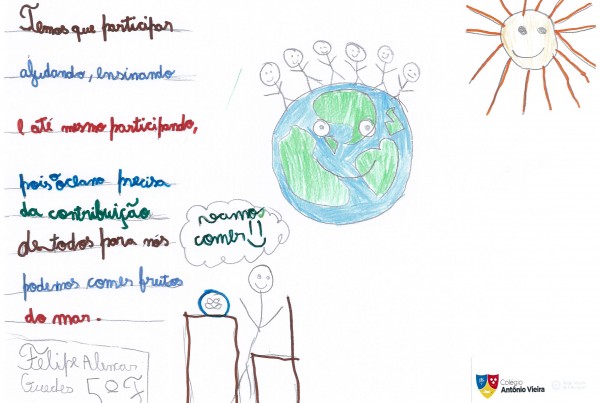 Temos que participar
ajudando, ensinando
e até mesmo participando,
pois o oceano precisa
da contribuição
de todos para nós
podemos comer frutos
do mar.
vamos
comer!!
Felipe Alencar
Guedes 5º F
Colégio
Antônio Vieira